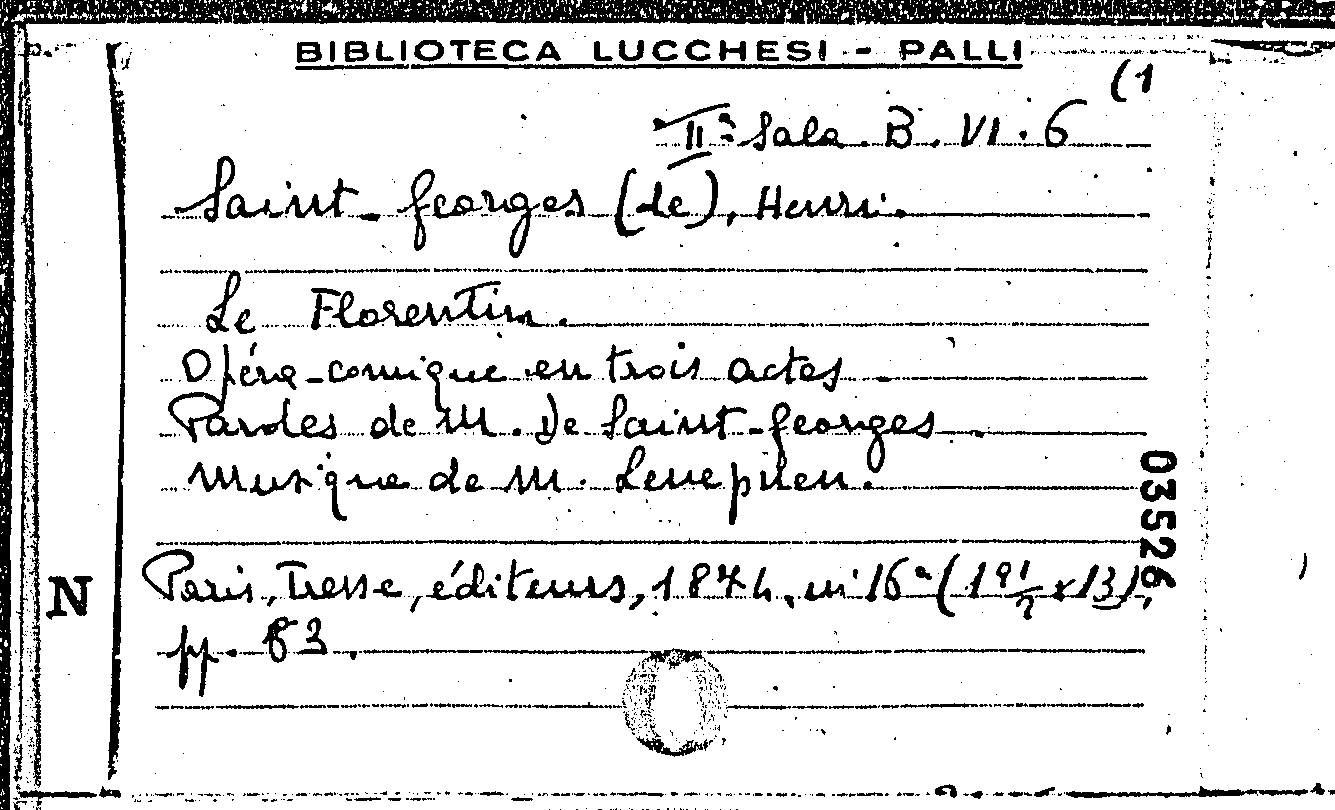 BIBLIOTECA LUCCHESI - PALLI
(1
IIª Sala. B. VI. 6
Saint-Georges (de), Henri.
Le Florentin.
Opéra-comique en trois actes
Paroles de M. De Saint-Georges
Musique de M. Lenepveu.
03526
Paris, Tresse, éditeurs, 1874, in 16° (19½ x 13),
N
pp. 83.